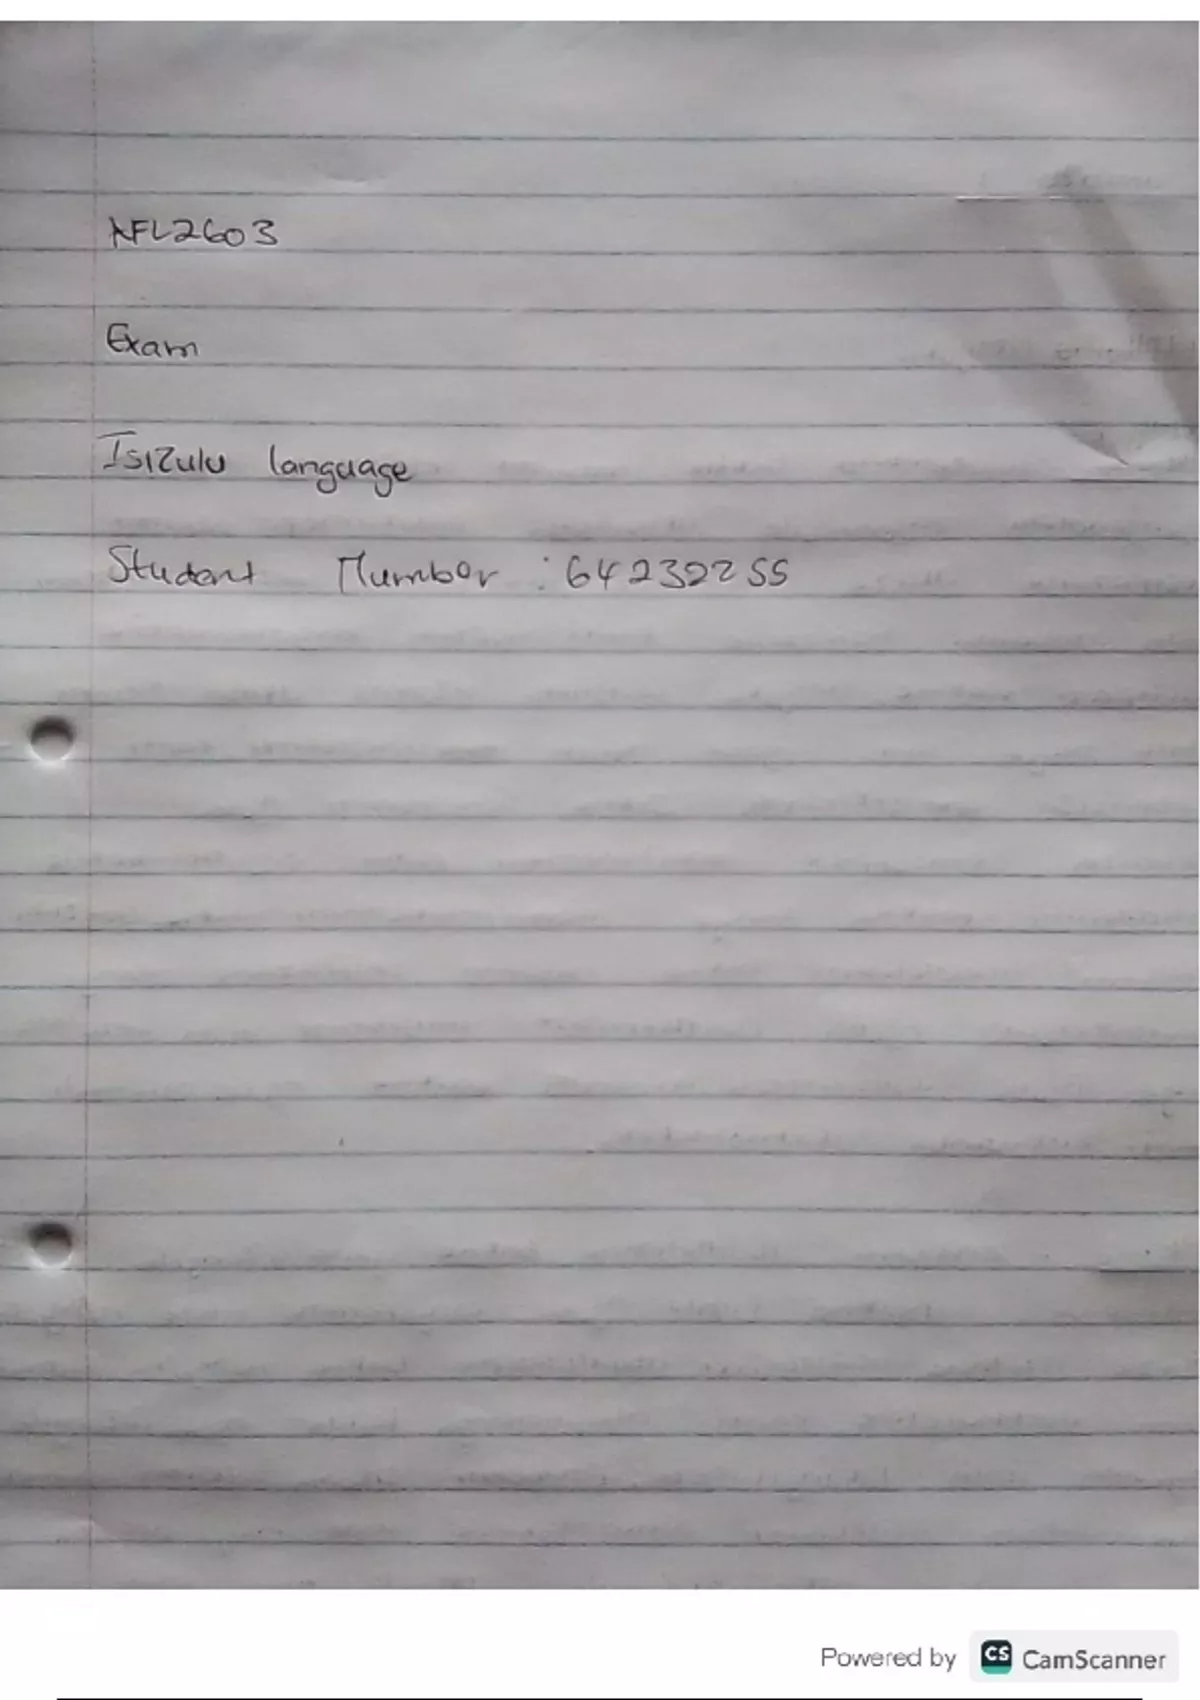 AFL2603
Exam
IsiZulu language
Student Number : 64232255
Powered by CS CamScanner